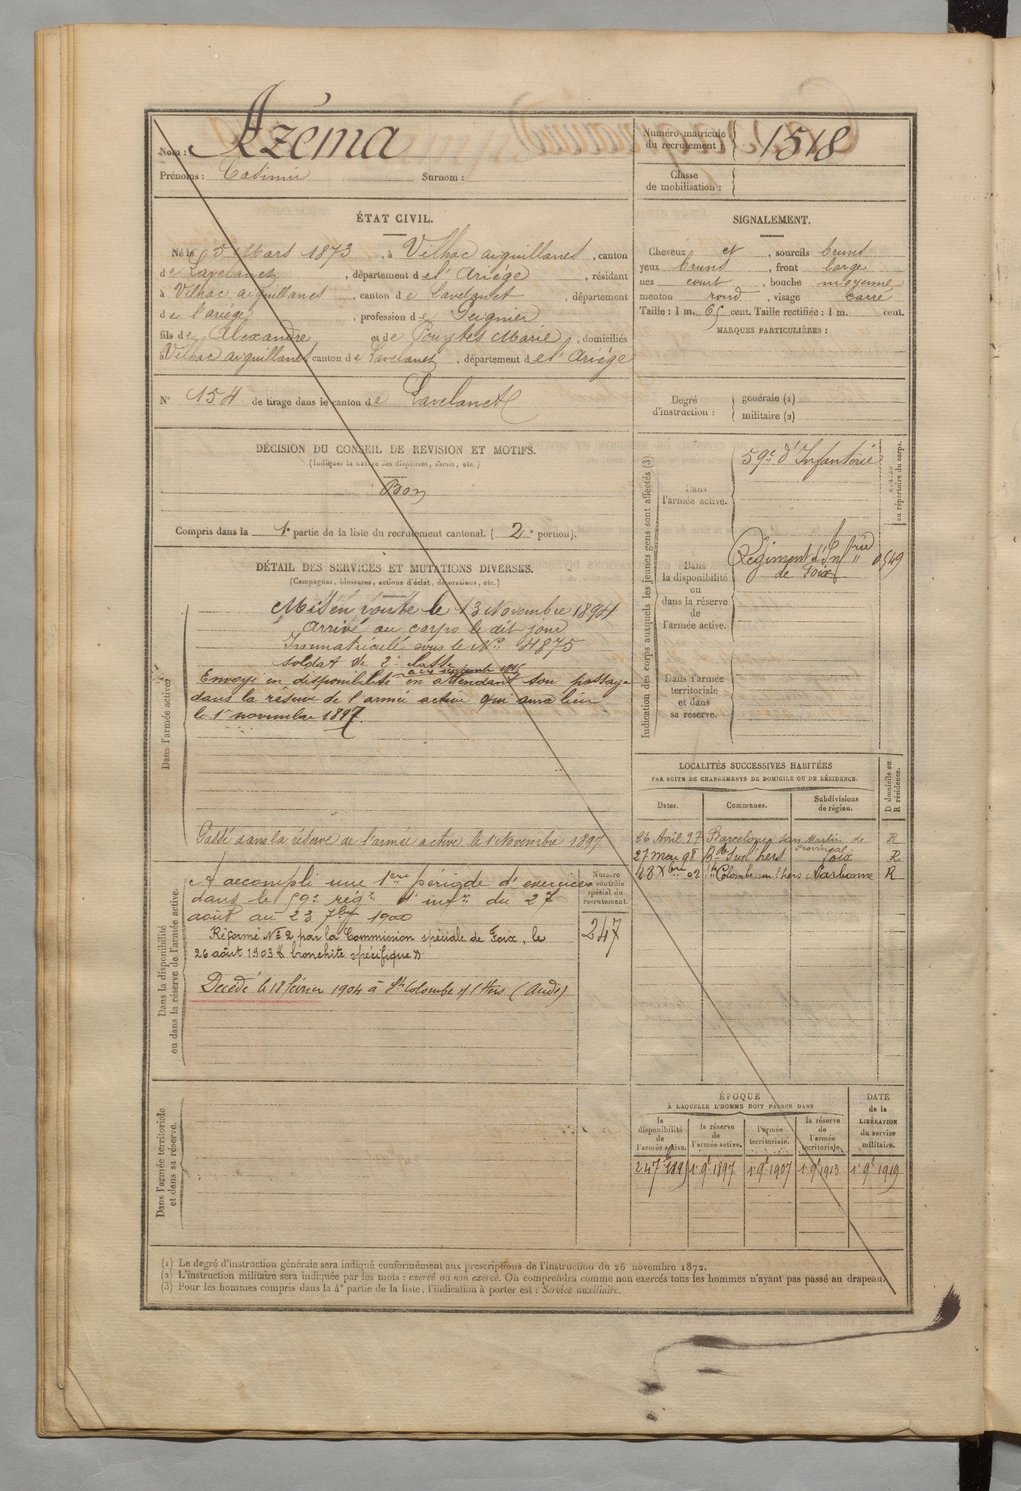 Nom : Azéma
Prénoms : Casimir Surnom :
Numéro matricule du recrutement : 1518
Classe de mobilisation :
ÉTAT CIVIL.
Né le 5 Mars 1873, à Vilhac aiguillanes, canton
de Lavelanet, département de l'Ariége, résidant
à Vilhac aiguillanes, canton de Lavelanet, département
de l'ariége, profession de Peignier
fils de Alexandre et de Pouytes Marie, domiciliés
à Vilhac aiguillanes canton de Lavelanet, département de l'Ariége
N° 154 de tirage dans le canton de Lavelanet
SIGNALEMENT.
Cheveux et, sourcils bruns
yeux bruns, front large
nez court, bouche moyenne
menton rond, visage carré
Taille : 1 m. 65 cent. Taille rectifiée : 1 m. cent.
MARQUES PARTICULIÈRES :
Degré d'instruction : générale (1)
militaire (2)
DÉCISION DU CONSEIL DE REVISION ET MOTIFS.
(Indiquer la nature des dispenses, sursis, etc.)
Bon
Compris dans la 1e partie de la liste du recrutement cantonal. (2e portion).
DÉTAIL DES SERVICES ET MUTATIONS DIVERSES.
(Campagnes, blessures, actions d'éclat, décorations, etc.)
Dans l'armée active.
Mis en route le 13 Novembre 1894
Arrivé au corps le dit jour
Immatriculé sous le No 4875
soldat de 2e classe
Envoyé en disponibilité en attendant son passage
dans la réserve de l'armée active qui aura lieu
le 1er novembre 1897.
Passé dans la réserve de l'armée active le 1er Novembre 1897
Dans la disponibilité ou dans la réserve de l'armée active.
A accompli une 1ère période d'exercices
dans le 59e régt d'infie du 27
août au 23 7bre 1900
Réformé No 2 par la Commission spéciale de Foix, le
26 août 1903 « bronchite spécifique »
Décédé le 18 février 1904 à Ste Colombe s/ l'Hers (Aude)
Numéro au contrôle spécial du recrutement.
247
Dans l'armée territoriale et dans sa réserve.
Indication des corps auxquels les jeunes gens sont affectés (3).
Dans l'armée active.
59e d'Infanterie
NUMÉRO au répertoire du corps.
Dans la disponibilité ou dans la réserve de l'armée active.
Régiment d'Infrie
de Foix
0549
Dans l'armée territoriale et dans sa réserve.
LOCALITÉS SUCCESSIVES HABITÉES
PAR SUITE DE CHANGEMENTS DE DOMICILE OU DE RÉSIDENCE.
Dates. Communes. Subdivisions de région. D domicile ou R résidence.
26 Avril 97 Barcelone San Martin de Provincial R
27 Mai 98 Ste Sur l'hers Foix R
8 Xbre 02 Ste Colombe sur l'hers Narbonne R
ÉPOQUE
À LAQUELLE L'HOMME DOIT PASSER DANS
la disponibilité de l'armée active.
la réserve de l'armée active.
l'armée territoriale.
la réserve de l'armée territoriale.
DATE de la LIBÉRATION du service militaire.
24 7bre 1895 1er 9e 1897 1er 9e 1907 1er 9e 1913 1er 9e 1919
(1) Le degré d'instruction générale sera indiqué conformément aux prescriptions de l'instruction du 26 novembre 1872.
(2) L'instruction militaire sera indiquée par les mots : exercé ou non exercé. On comprendra comme non exercés tous les hommes n'ayant pas passé au drapeau.
(3) Pour les hommes compris dans la 4e partie de la liste, l'indication à porter est : Service auxiliaire.